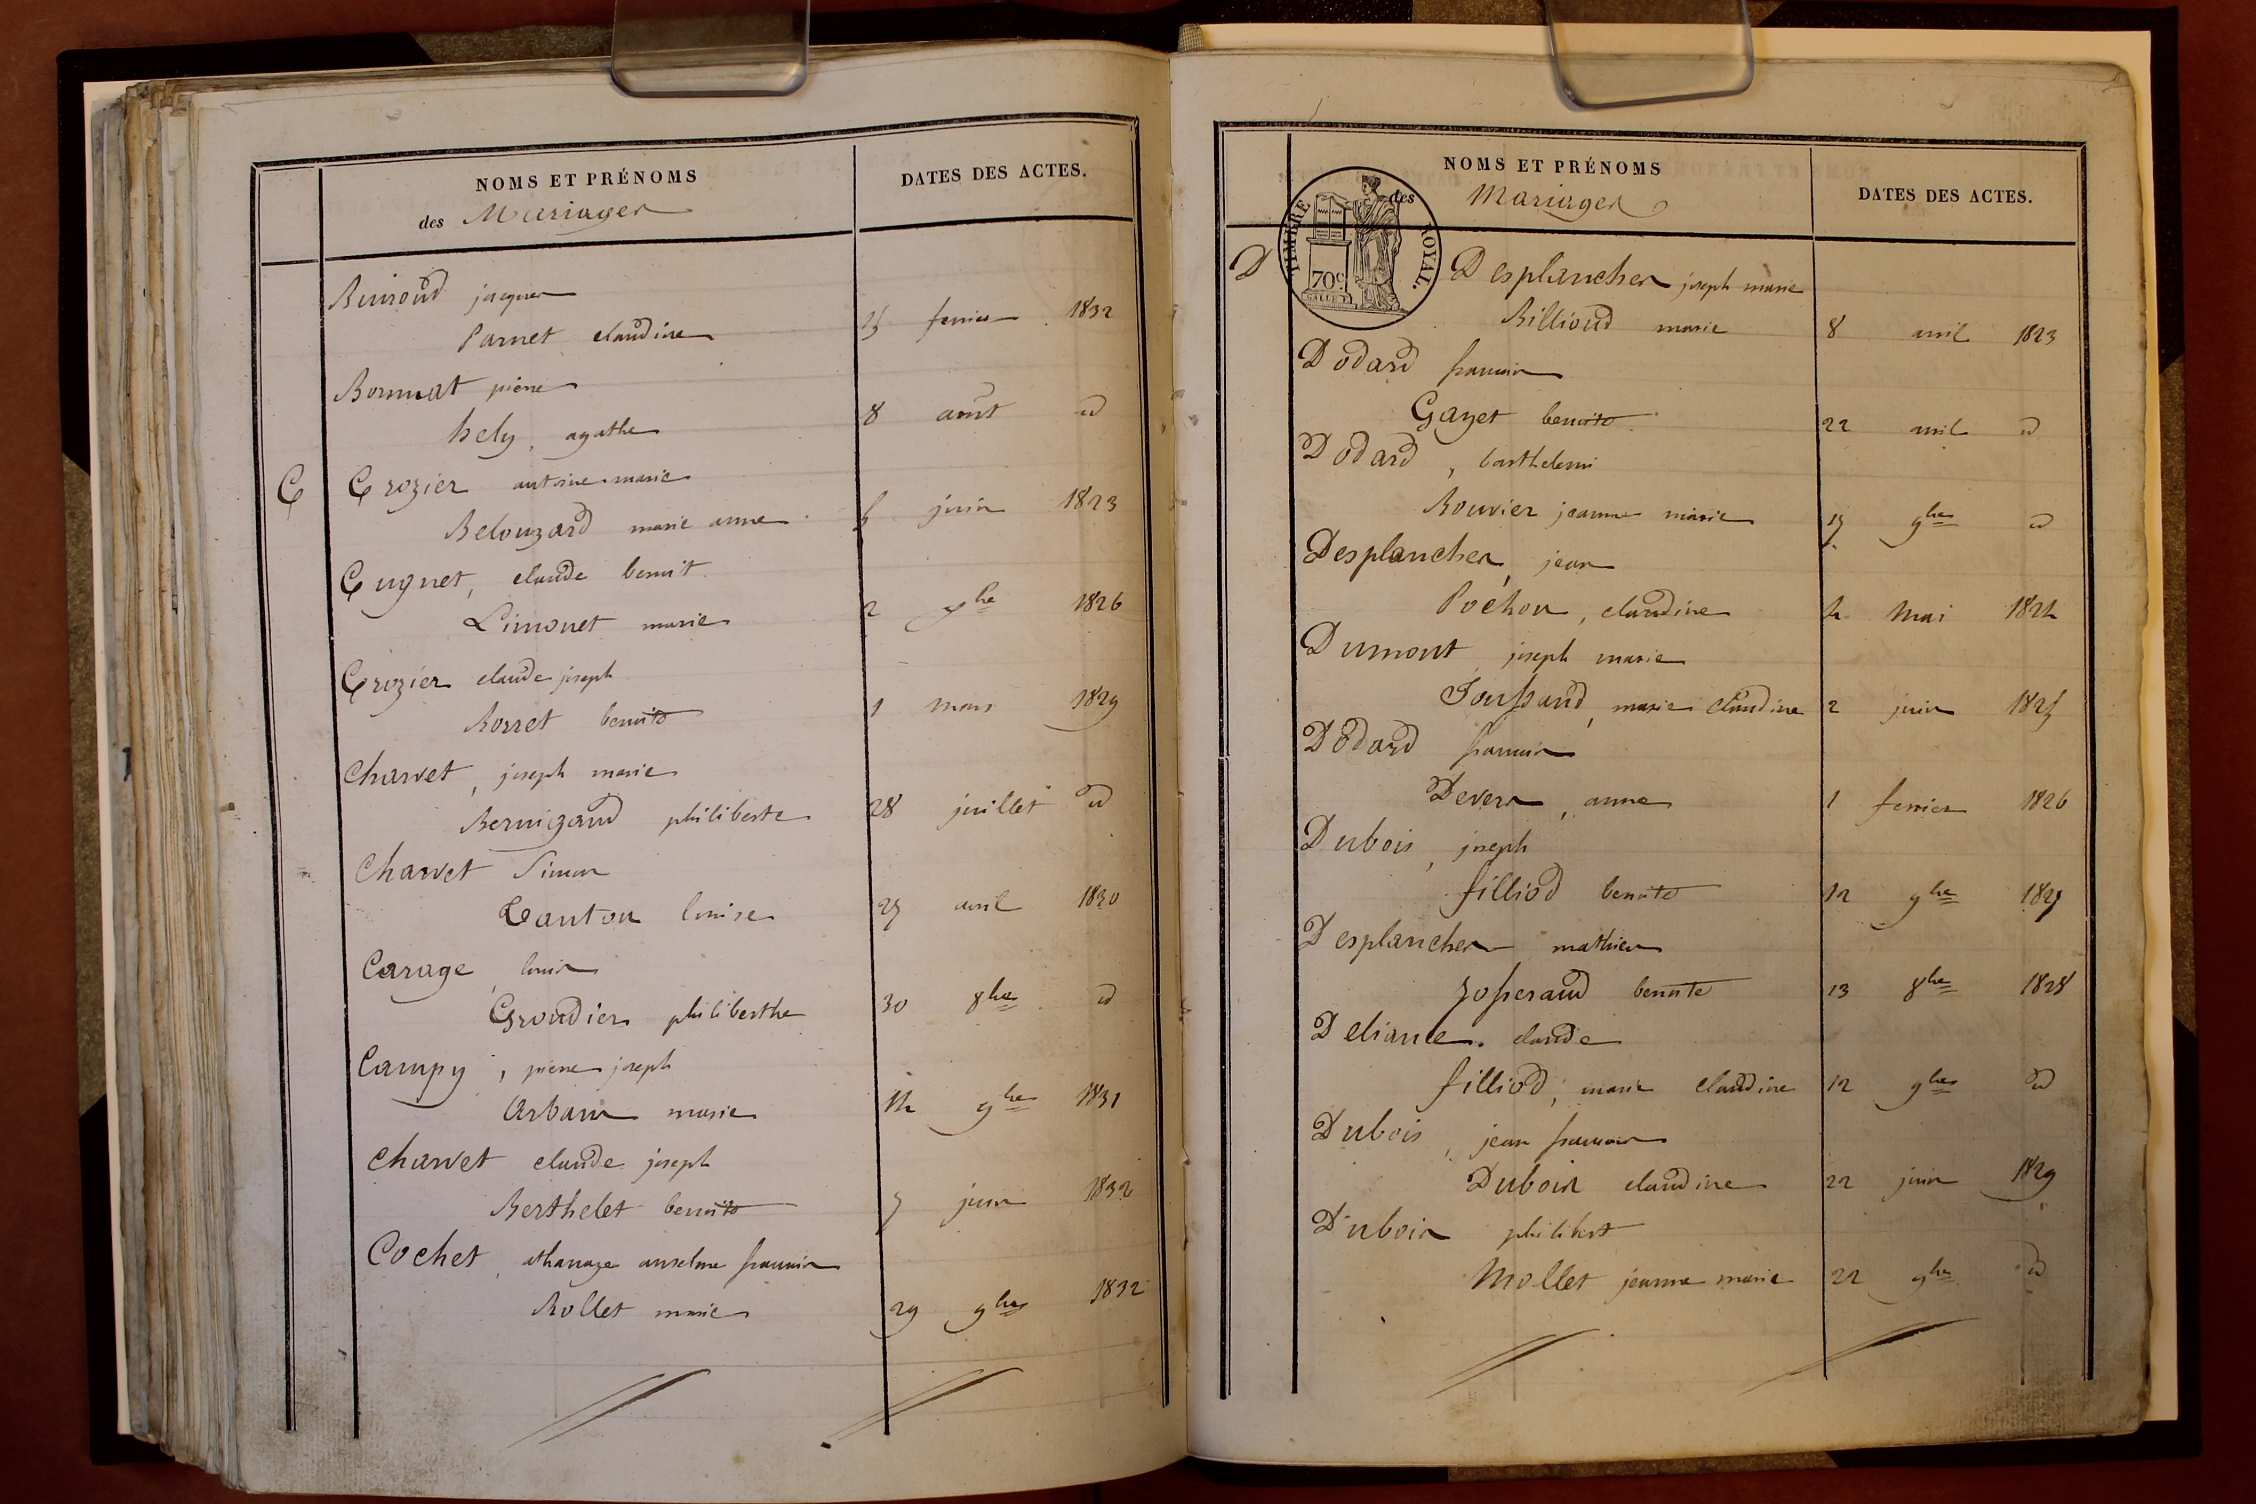 NOMS ET PRÉNOMS
des Mariages
DATES DES ACTES.
jacques
Parnet claudine fevrier 1832
Bonnat pierre
hely, agathe 8 août id
C Crozier antoine marie
Belouzard marie anne juin 1823
Cugnet, claude benoit
Limonet marie 2 1826
Crozier claude joseph
Borret benoite 1 mars 1829
Charvet, joseph marie
Bernigaud philiberte 28 juillet id
Charvet Simon
Lanton louise 27 avril 1830
Carage, louis
Groudier philiberthe 30 8bre id
Campy, pierre joseph
Arban marie 14 9bre 1831
Charvet claude joseph
Berthelet benoite 7 juin 1832
Cochet, athanaze anselme francois
Rollet marie 29 9bre 1832
NOMS ET PRÉNOMS
des Mariages
DATES DES ACTES.
TIMBRE ROYAL.
70c.
D Desplanches joseph marie
Billioud marie 8 avril 1823
Dodard francois
Gayet benoite 22 avril id
Dodard, barthelemi
Bouvier jeanne marie 17 9bre id
Desplanches, jean
Pochon, claudine 4 Mai 1824
Dumont, joseph marie
Joussaud, marie claudine 2 juin 1825
Dodard francois
Devers, anne 1 fevrier 1826
Dubois, joseph
filliod benoite 12 9bre 1827
Desplanches mathieu
Josserand benoite 13 8bre 1828
Deliance. claude
filliod, marie claudine 12 9bre id
Dubois, jean francois
Dubois claudine 22 juin 1829
Dubois philibert
Mollet jeanne marie 22 9bre id